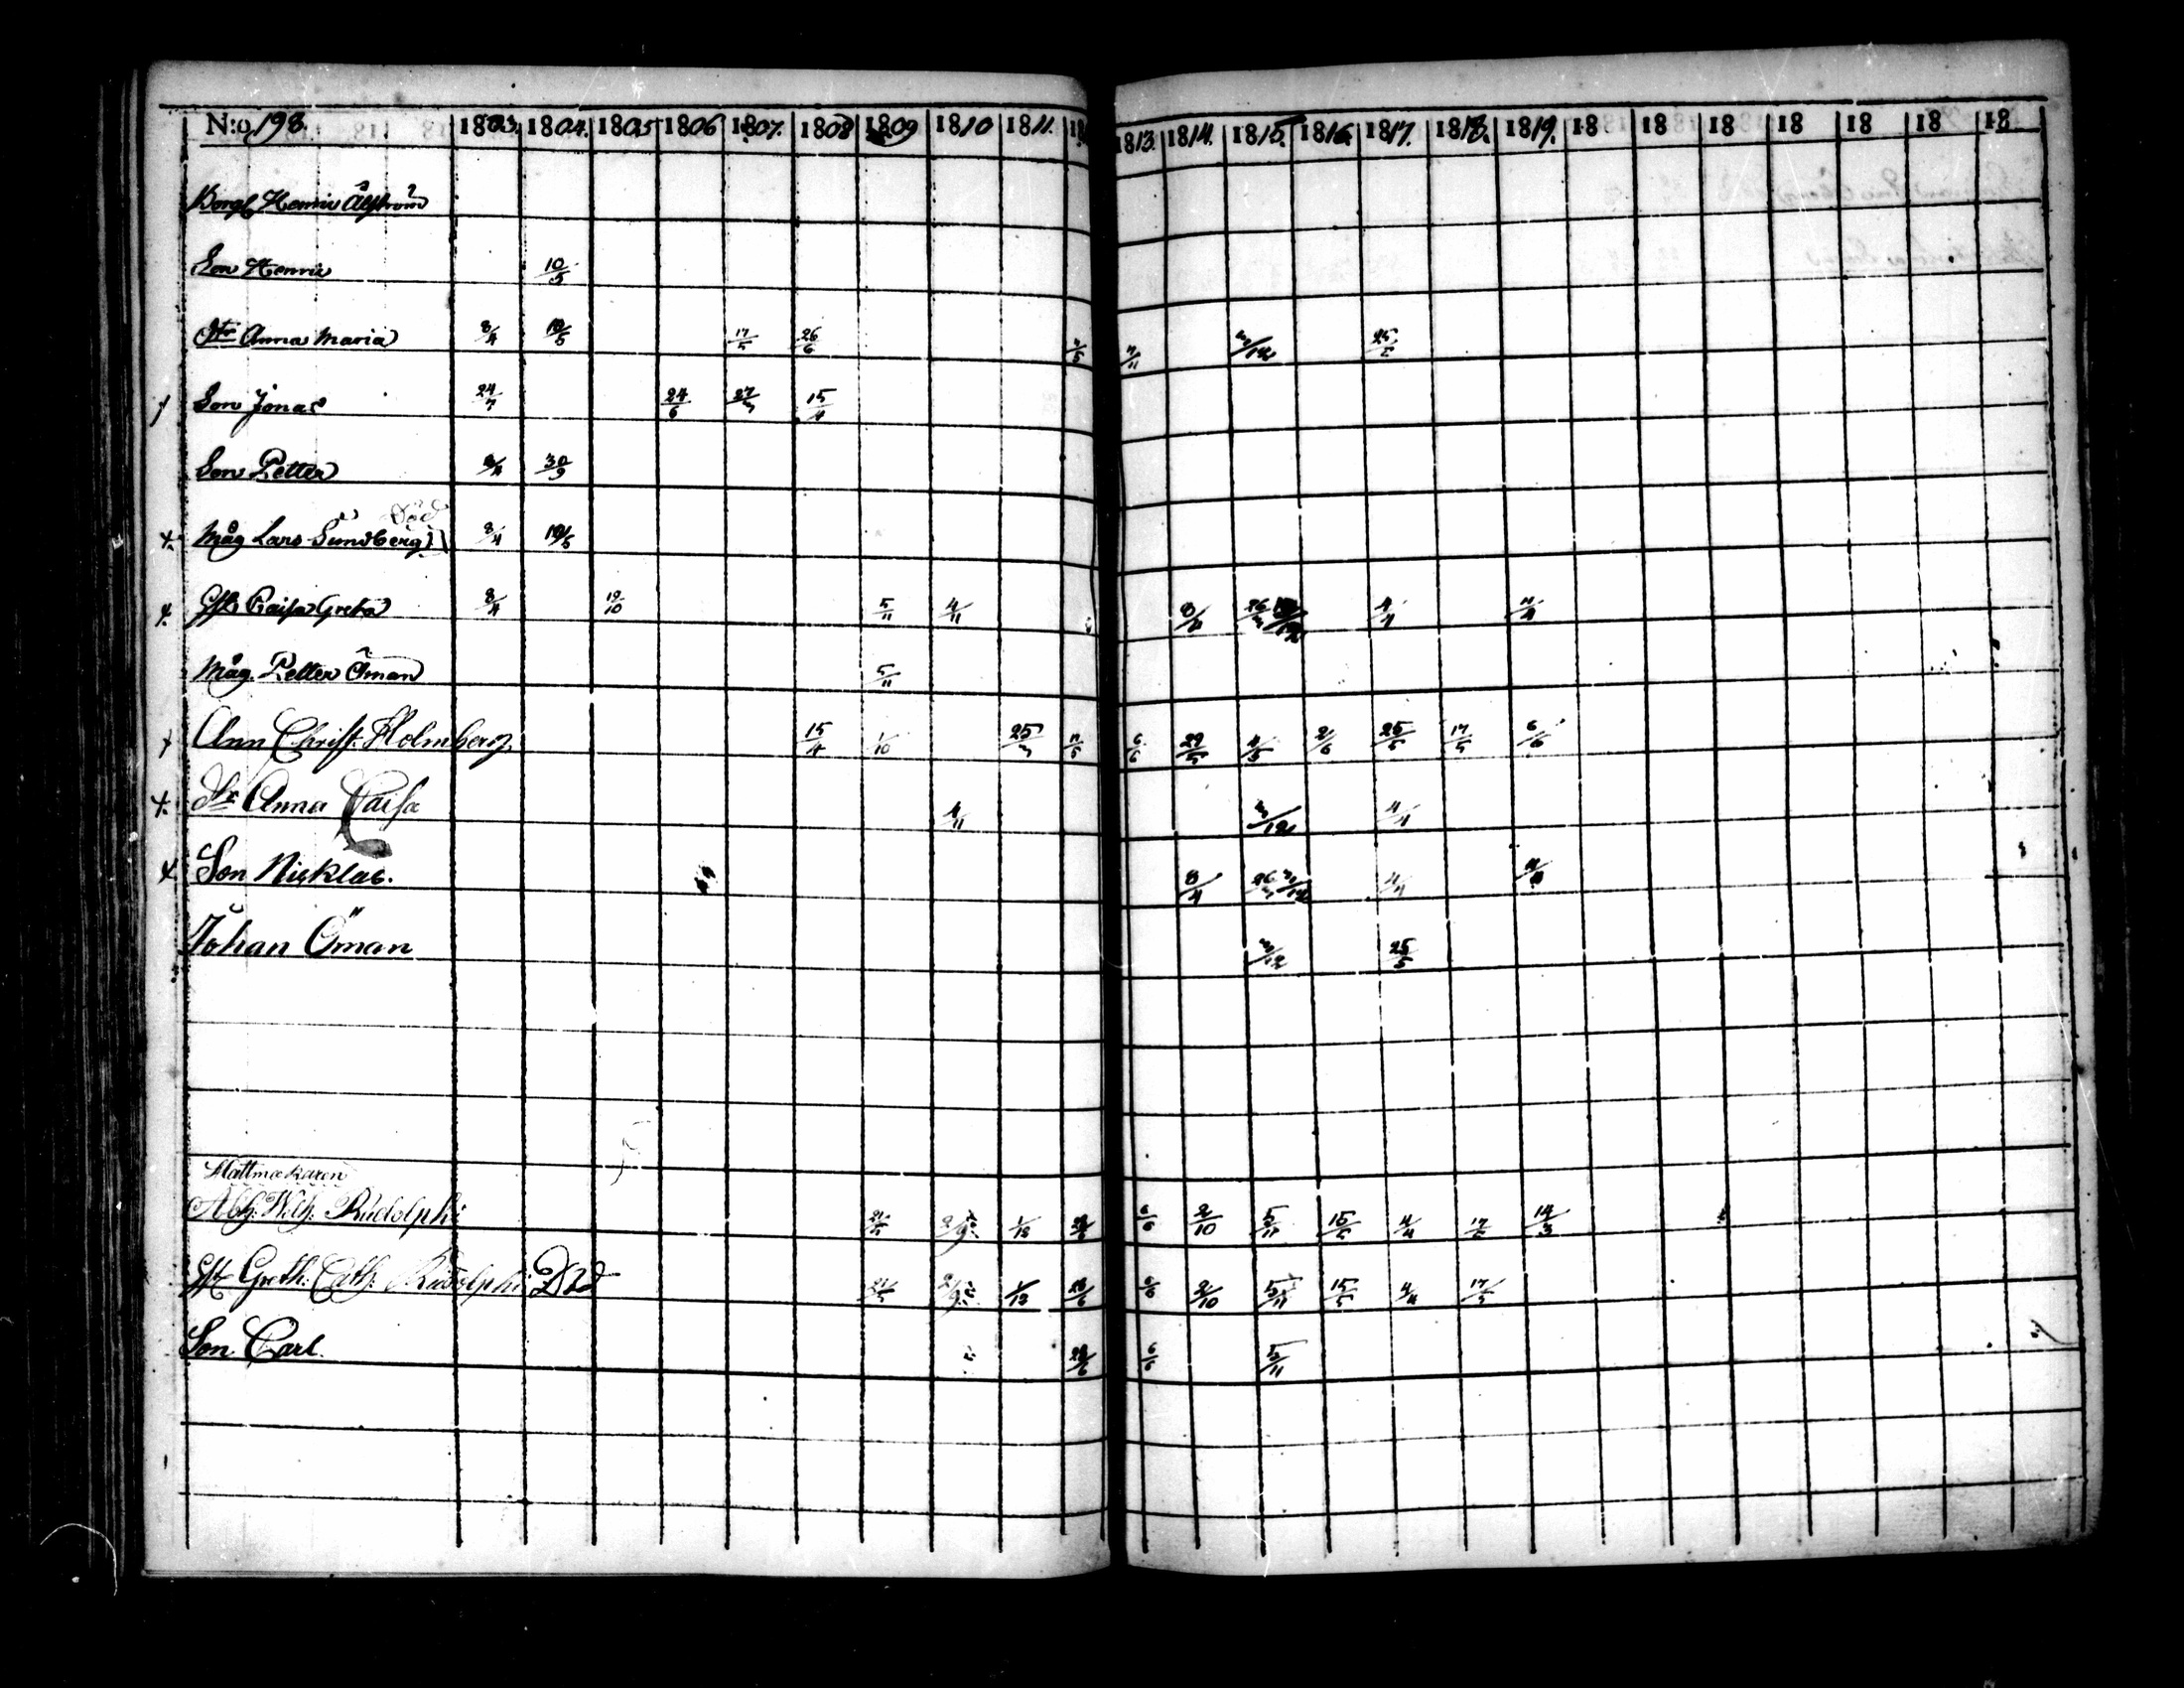 N:o 198. 1803. 1804. 1805 1806 1807. 1808 1809 1810 1811. 18 1813. 1814. 1815. 1816. 1817. 1818. 1819. 18 18 18 18 18 18 18
Borg. Henric Åhström
Son Henric 10/5
Dtr Anna Maria 8/4 10/5 17/5 26/6 7/5 7/11 3/12 25/5
Son Jonas 24/7 24/6 27/3 15/4
Son Petter 8/4 30/9
Död
Måg Lars Sundberg 8/4 10/5
Hst Caisa Greta 8/4 19/10 5/11 4/11 8/4 26/3 4/4 11/4
Måg. Petter Öman 5/11
Ann Christ. Holmberg 15/4 1/10 25/3 11/5 6/6 29/5 4/5 2/6 25/5 17/5 6/6
Dtr Anna Caisa 4/11 3/12 4/4
Son Nicklas. 8/4 26/3 3/12 4/4 11/4
Johan Öman 3/12 25/5
Hattmakaren
Abh. Wilh. Rudolphi 21/5 1/12 28/6 6/6 2/10 5/11 15/5 4/4 17/5 14/3
Hst Greth. Cath. Rudolphi Död 21/5 1/12 28/6 6/6 2/10 5/11 15/5 4/4 17/5
Son Carl. 28/6 6/6 5/11